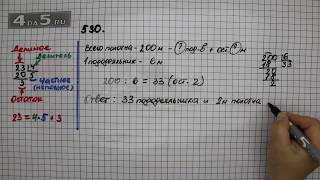 4DA5.RU
530.
Делимое
делитель
23 | 4
20 5
3 частное
(неполное)
Остаток
23 = 4·5 + 3
Всего полотна - 200 м - ? под-в + ост. ? м
1 пододеяльник - 6 м
200 : 6 = 33 (ост. 2)
200 | 6
18 33
20
18
2
Ответ: 33 пододеяльника и 2 м полотна